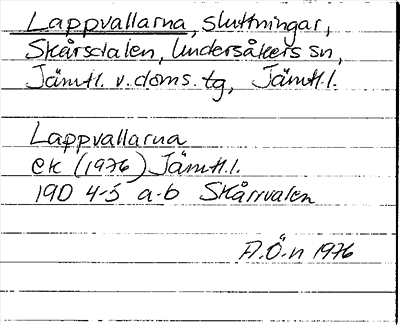 Lappvallarna, sluttningar,
Skårsdalen, Undersåkers sn,
Jämtl. v. doms. tg, Jämtl. l.
Lappvallarna
ek (1976) Jämtl. l.
19D 4-5 a-b Skårrvalen
A.Ö-n 1976